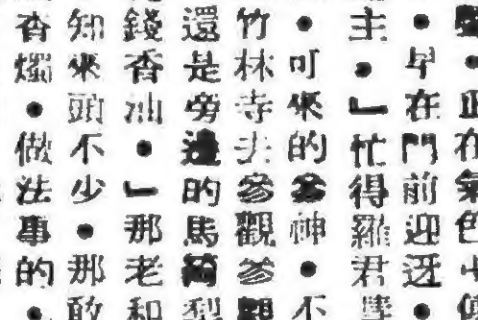 • 正在氣色
• 早在門前迎迓 •
主 • 」忙得羅君
• 來的叅神 • 不
竹林寺去參觀參觀
還是旁邊的馬爾犁
錢香油 • 」那老和
知來頭不少 • 那敢
香燭 • 做法事的 •